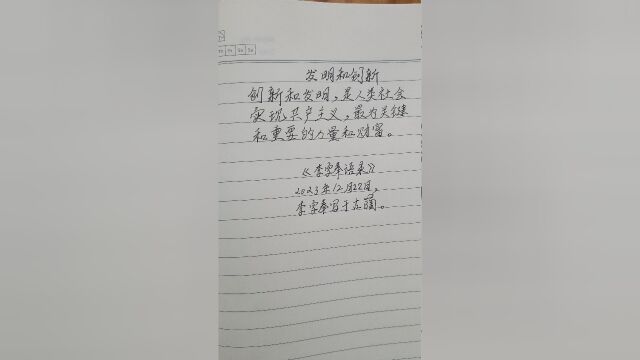 发明和创新
创新和发明，是人类社会
实现共产主义，最为关键
和重要的力量和财富。
《李字奉语录》
2023年12月22日，
李字奉写于古蔺。